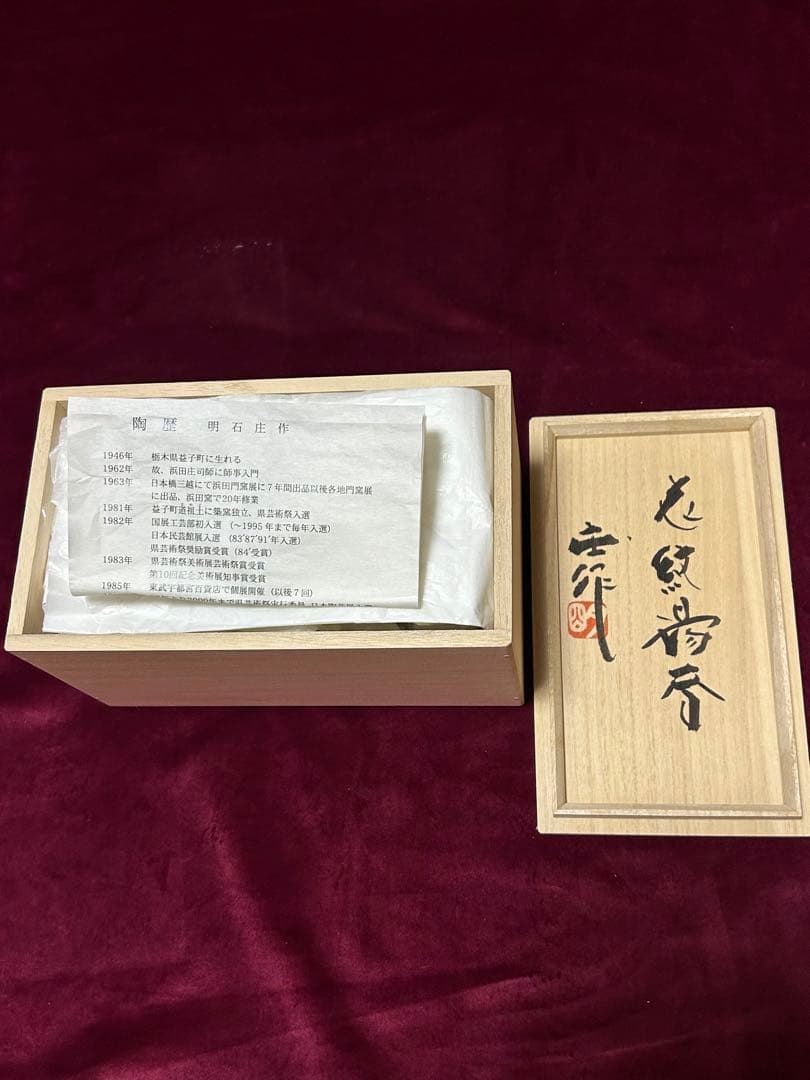 陶歴 明石庄作
1946年 栃木県益子町に生れる
1962年 故、浜田庄司師に師事入門
1963年 日本橋三越にて浜田門窯展に7年間出品以後各地門窯展
に出品、浜田窯で20年修業
1981年 益子町道祖土に築窯独立、県芸術祭入選
1982年 国展工芸部初入選 (〜1995年まで毎年入選)
日本民芸館展入選 (83'87'91'年入選)
県芸術祭奨励賞受賞 (84'受賞)
1983年 県芸術祭美術展芸術祭賞受賞
第10回記念美術展知事賞受賞
1985年 東武宇都宮百貨店で個展開催 (以後7回)
花紋湯呑
庄作